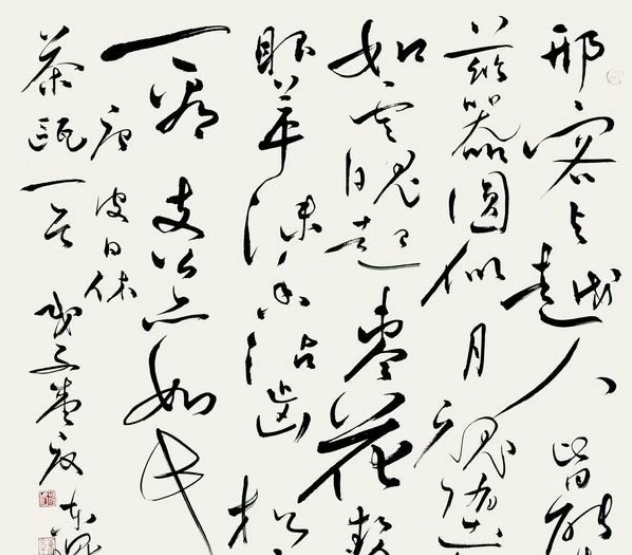 邢客与越人皆能
兹器圆似月魂堕
如云魄起枣花势
眼苹沫香沾齿松
一看支公亦如
唐皮日休
茶瓯一首